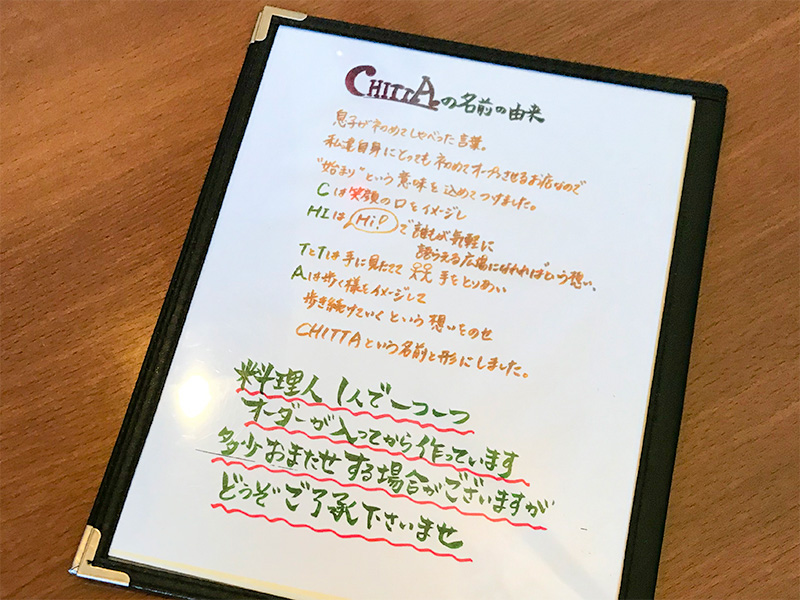 CHITTAの名前の由来
息子が初めてしゃべった言葉。
私達自身にとっても初めてオープンさせるお店なので
"始まり"という意味を込めてつけました。
Cは笑顔の口をイメージし
HIは Hi! で誰もが気軽に
語らえる広場になれればという想い、
TとTは手に見たてて 手をとりあい
Aは歩く様をイメージして
歩き続けていくという想いをのせ
CHITTAという名前と形にしました。
料理人1人で一つ一つ
オーダーが入ってから作っています
多少おまたせする場合がございますが
どうぞご了承下さいませ